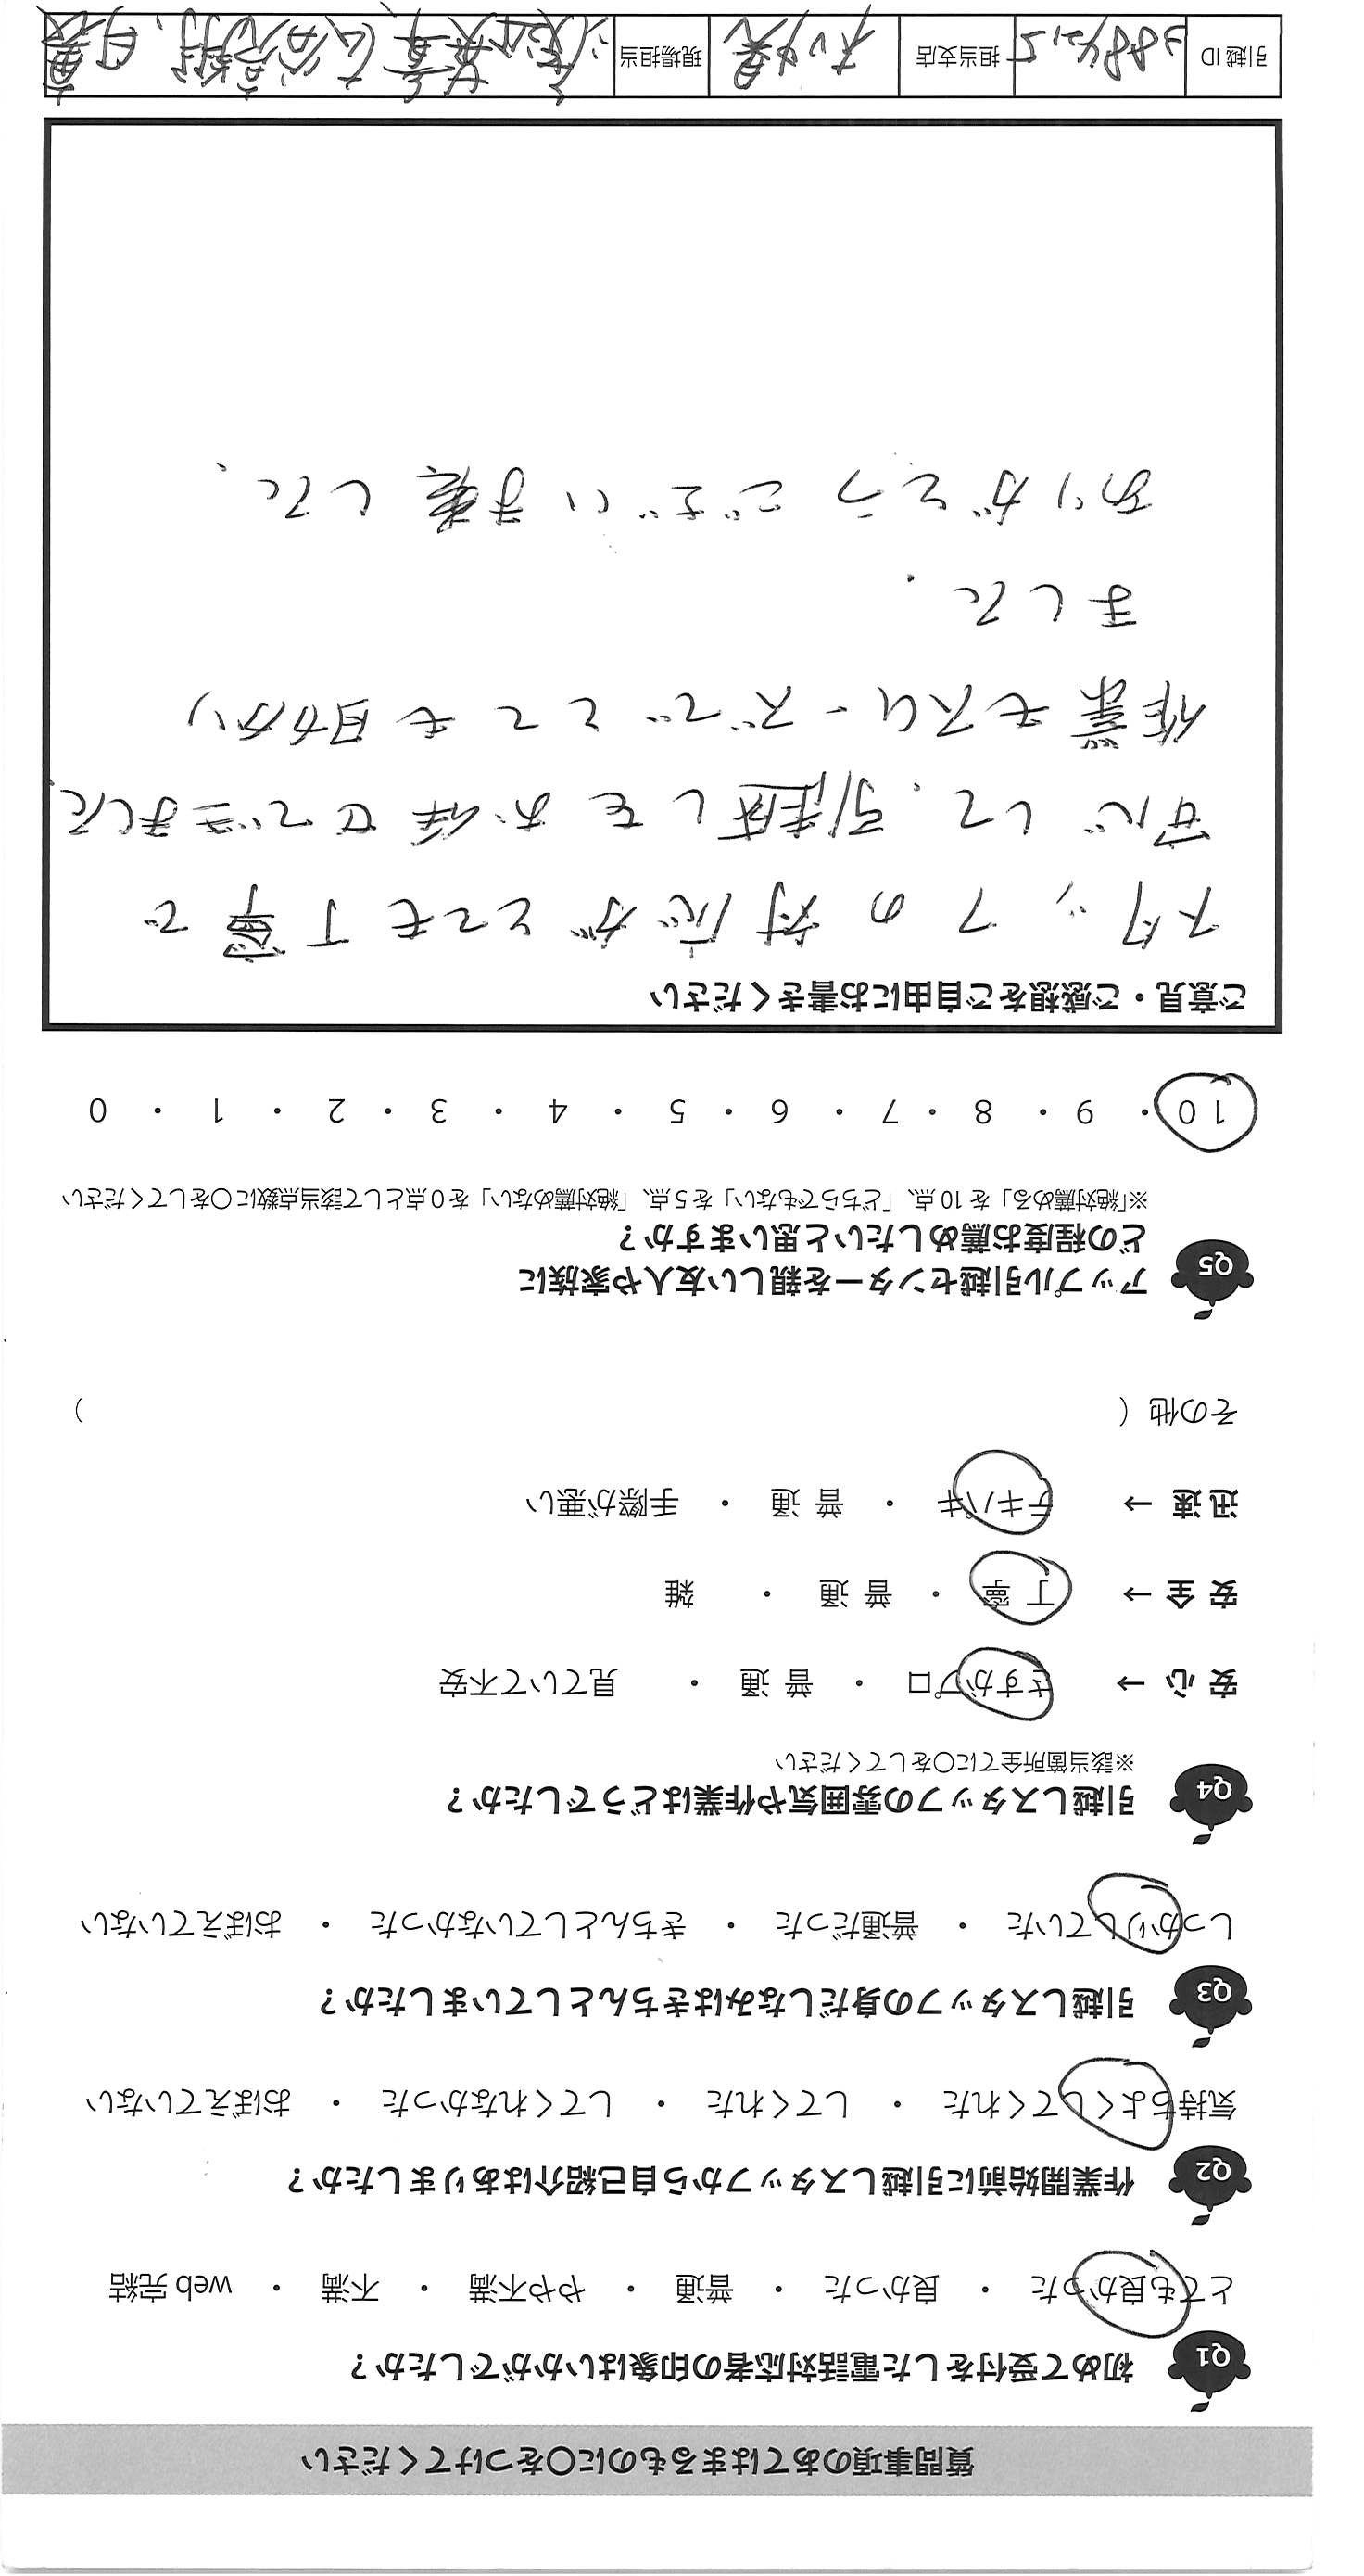 質問事項のあてはまるものに○をつけてください
Q1 初めて受付をした電話対応者の印象はいかがでしたか?
とても良かった ・ 良かった ・ 普通 ・ やや不満 ・ 不満 ・ web 完結
Q2 作業開始前に引越しスタッフから自己紹介はありましたか?
気持ちよくしてくれた ・ してくれた ・ してくれなかった ・ おぼえていない
Q3 引越しスタッフの身だしなみはきちんとしていましたか?
しっかりしていた ・ 普通だった ・ きちんとしていなかった ・ おぼえていない
Q4 引越しスタッフの雰囲気や作業はどうでしたか?
※該当箇所全てに○をしてください
安心 → さすがプロ ・ 普通 ・ 見ていて不安
安全 → 丁寧 ・ 普通 ・ 雑
迅速 → テキパキ ・ 普通 ・ 手際が悪い
その他 ( )
Q5 アップル引越センターを親しい友人や家族に
どの程度お薦めしたいと思いますか?
※「絶対薦める」を 10 点、「どちらでもない」を 5 点、「絶対薦めない」を 0 点として該当点数に○をしてください
10 ・ 9 ・ 8 ・ 7 ・ 6 ・ 5 ・ 4 ・ 3 ・ 2 ・ 1 ・ 0
ご意見・ご感想をご自由にお書きください
スタッフの対応がとても丁寧で
安心して、引越しをお任せできました。
作業もスムーズでとても助かり
ました。
ありがとうございました。
引越 ID 担当支店 現場担当